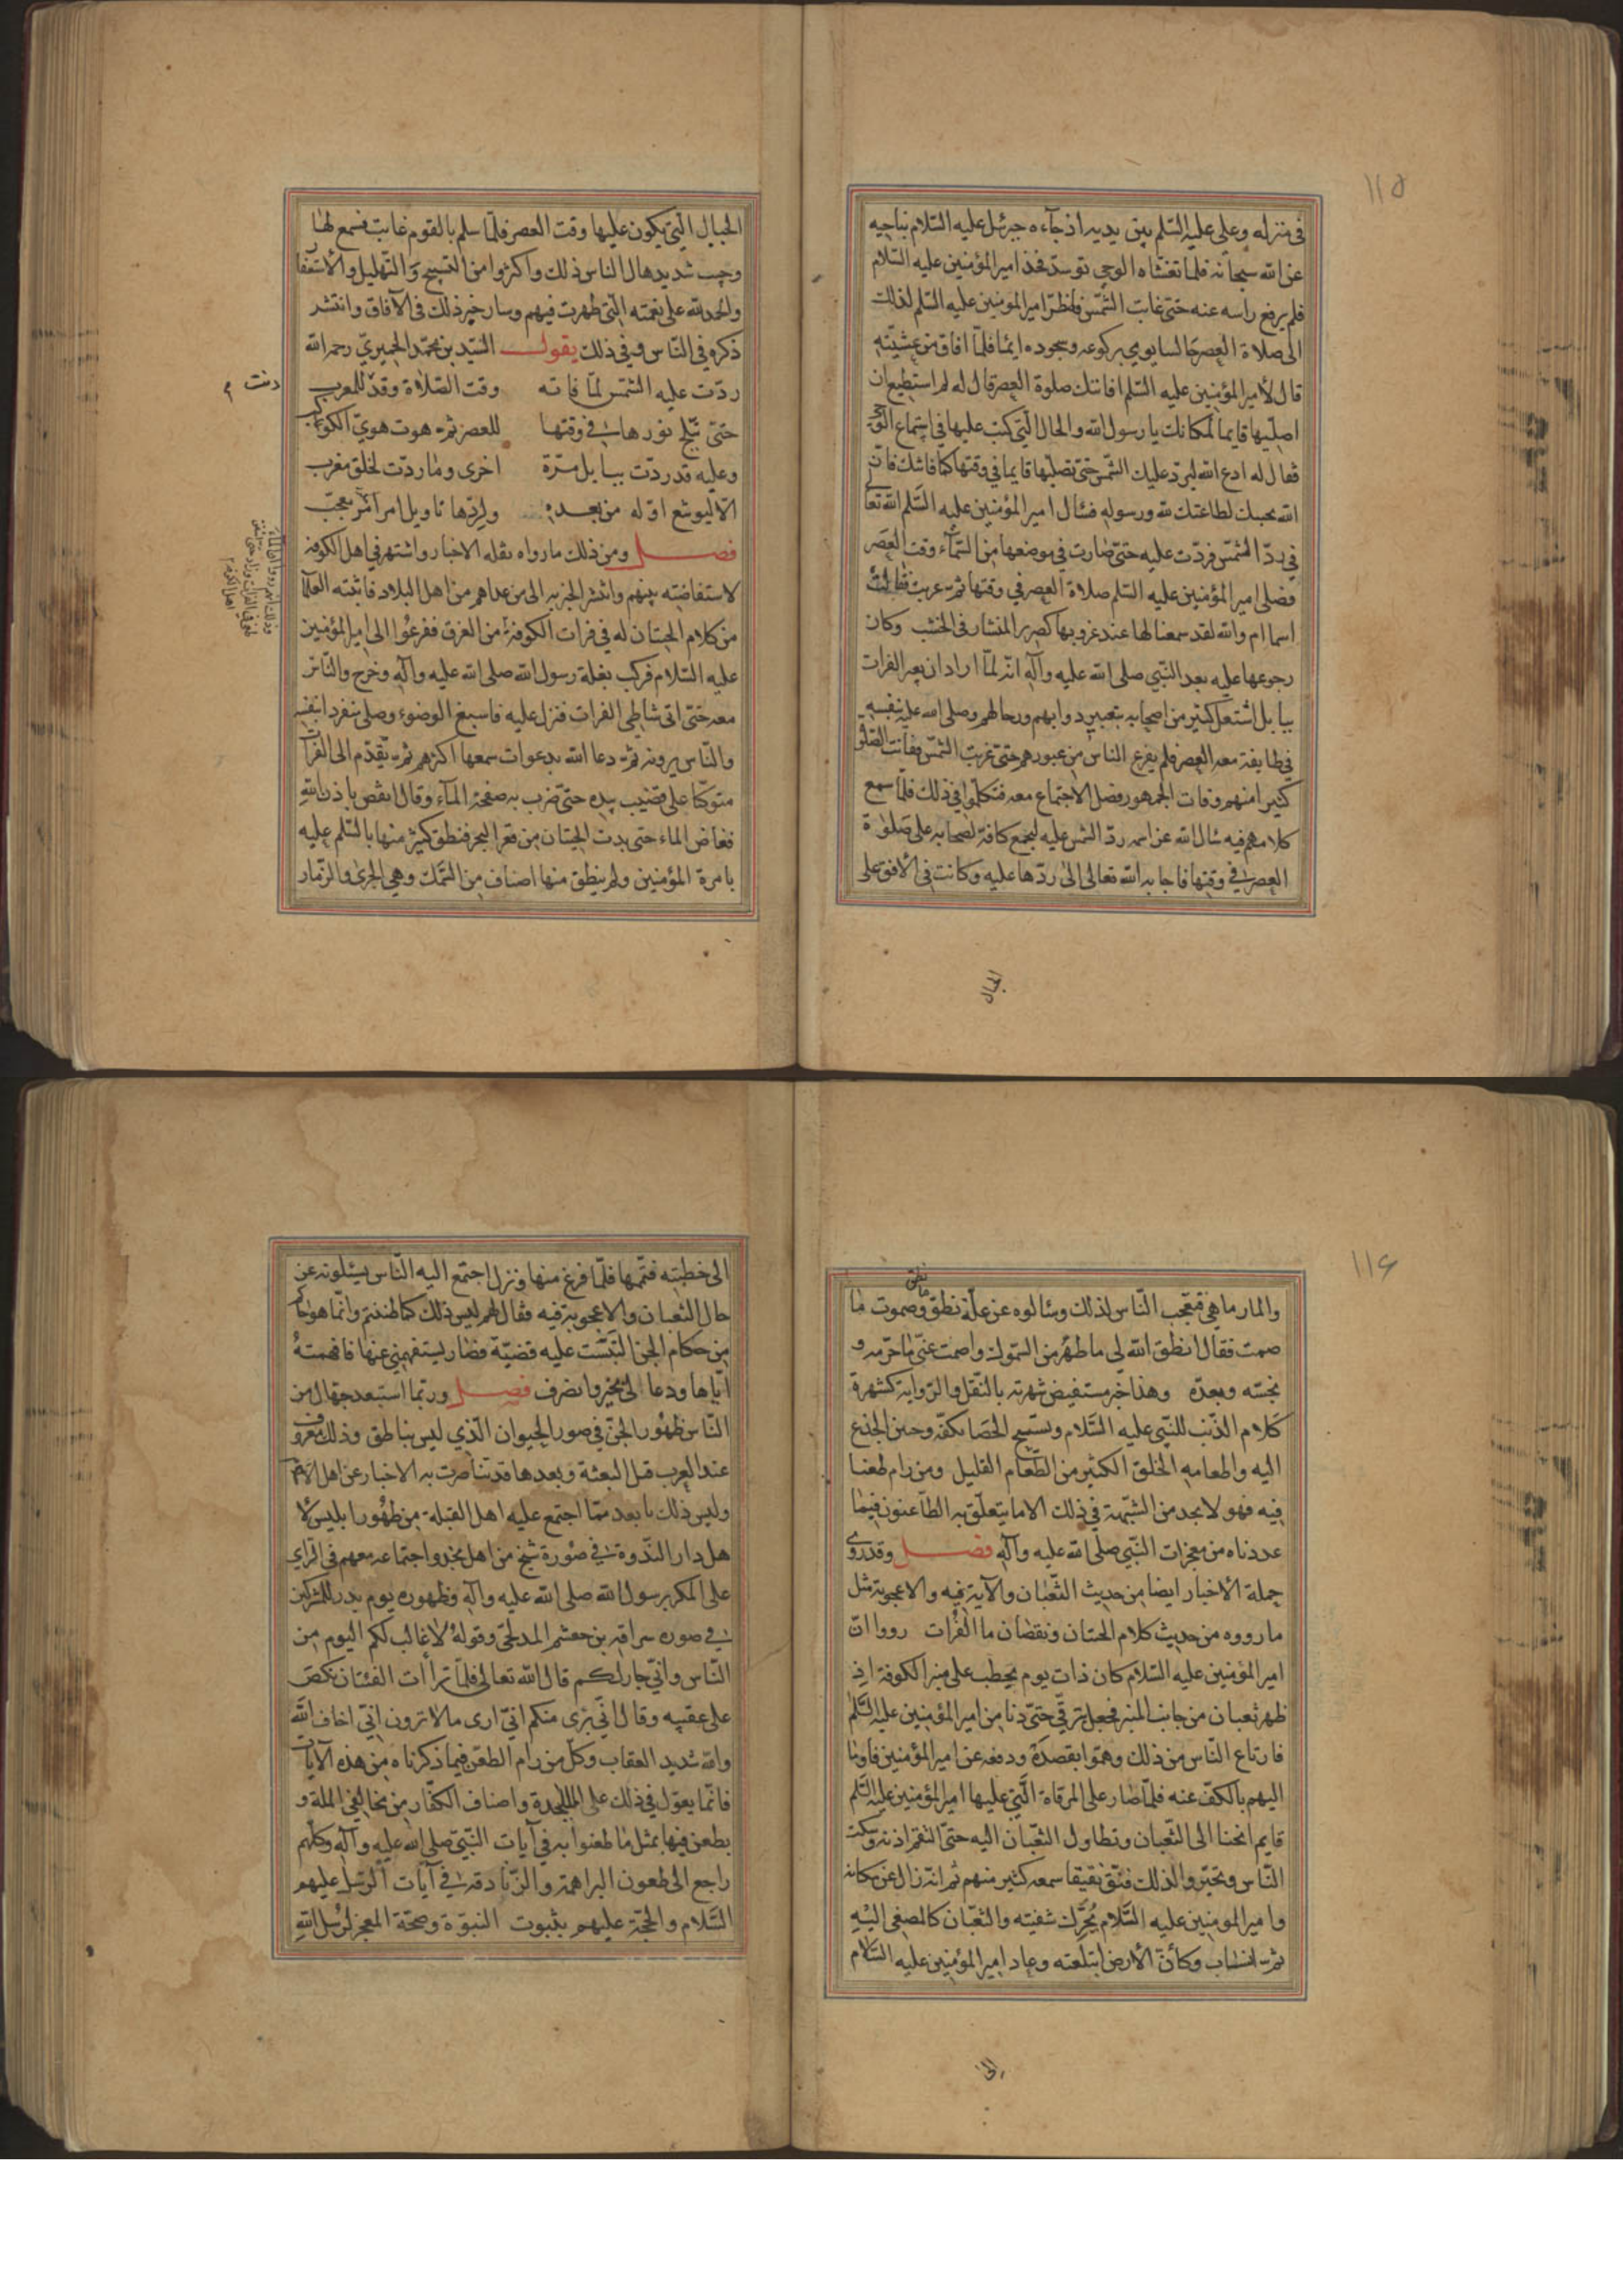 ١١٥
في منزله وعلي عليه السّلم بين يديه اذ جآءه جبرئيل عليه السّلام يناجيه
عن الله سبحانه فلما تغشّاه الوحي توسد فخذ امير المؤمنين عليه السّلام
فلم يرفع راسه عنه حتى غابت الشّمس فاضطرّ امير المؤمنين عليه السّلم لذلك
الى صلاة العصر جالسا يومي بركوعه وسجوده ايمآ فلمّا افاق من غشيته
قال لأمير المؤمنين عليه السّلم افاتتك صلوة العصر قال له لم استطيع ان
اصلّيها قايما لمكانك يا رسول الله والحال الّتي كنت عليها في استماع الوحي
فقال له ادع الله ليردّ عليك الشّمس حتى تصلّيها قايما في وقتها كما فاتتك فان
الله يجيبك لطاعتك لله ورسوله فسأل امير المؤمنين عليه السّلم الله تعالى
في ردّ الشّمس فردّت عليه حتىّ صارت في موضعها من السّمآء وقت العصر
فصلى امير المؤمنين عليه السّلم صلاة العصر في وقتها ثمّ غربت فقالت
اسما ام والله لقد سمعنا لها عند غروبها كصرير المنشار في الخشب وكان
رجوعها عليه بعد النّبي صلى الله عليه وآله انّه لمّا اراد ان يعبر الفرات
ببابل اشتغل كثير من اصحابه بتعبير دوابهم ورحالهم وصلى عليه بنفسه
في طايفة معه العصر فلم يفرغ الناس من عبورهم حتى غربت الشّمس ففاتت الصّلوة
كثيرا منهم وفات الجمهور فضل الاجتماع معه فتكلّموا في ذلك فلمّا سمع
كلامهم فيه سال الله عز اسمه ردّ الشمس عليه ليجمع كافة اصحابه على صلوة
العصر في وقتها فاجابه الله تعالى الى ردّها عليه وكانت في الأفق على
الجبال
الجبال الّتي يكون عليها وقت العصر فلمّا سلم بالقوم غابت فسمع لها
وجيب شديد هال الناس ذلك واكثروا من التسبيح والتّهليل والأستغفار
والحمد لله على نعمته الّتي ظهرت فيهم وسار خبر ذلك في الآفاق وانتشر
ذكره في النّاس وفي ذلك يقول السّيد بن محمّد الحميريّ رحمه الله
ردّت عليه الشّمس لمّا فاته وقت الصّلاة وقد للمغرب
دنت
حتىّ تبلّج نورها في وقتها للعصر ثمّ هوت هويّ الكوكب
وعليه قد ردّت ببابل مرّة اخرى وما ردّت لخلق مغرب
الّا ليوشع او له من بعده ولردّها تاويل امر معجب
فصل ومن ذلك ما رواه نقلة الاخبار واشتهر في اهل الكوفة
لاستفاضته بينهم وانتشر الخبر به الى من عداهم من اهل البلاد فاثبته العلمآ
من كلام الحيتان له في فرات الكوفة من الغرق ففزعوا الى امير المؤمنين
عليه السّلام فركب بغلة رسول الله صلى الله عليه وآله وخرج والنّاس
معه حتىّ اتى شاطئ الفرات فنزل عليه فاسبغ الوضوء وصلى منفردا بنفسه
والنّاس يرونه ثمّ دعا الله بدعوات سمعها اكثرهم ثمّ تقدّم الى الفرات
متوكّا على قضيب بيده حتى ضرب به صفحة المآء وقال انقص باذن الله
فغاض الماء حتى بدت الحيتان من قعر البحر فنطق كثير منها بالسّلم عليه
بامرة المؤمنين ولم ينطق منها اصناف من السّمك وهي الجرى والزّمار
١١٦
والمار ماهي فتعجّب النّاس لذلك وسالوه عن علّة نطق ما نطق وصموت ما
صمت فقال انطق الله لي ما طهر من السّموك واصمت عنّي ما حرّمه و
نجسّه وبعدّه وهذا خبر مستفيض شهرته بالنّقل والرّواية كشهرة
كلام الذّئب للنّبي عليه السّلام وتسبيح الحصا بكفّه وحنين الجذع
اليه واطعامه الخلق الكثير من الطّعام القليل ومن رام طعنا
فيه فهو لا يجد من الشّبهة في ذلك الا ما يتعلّق به الطّاعنون فيما
عددناه من معجزات النّبي صلى الله عليه وآله فصل وقد روى
حملة الأخبار ايضا من حديث الثّعبان والآية فيه والاعجوبة مثل
ما رووه من حديث كلام الحيتان ونقصان ما الفرات رووا انّ
امير المؤمنين عليه السّلام كان ذات يوم يخطب على منبر الكوفة اذ
ظهر ثعبان من جانب المنبر فجعل يرقّي حتىّ دنا من امير المؤمنين عليه السّلم
فارتاع النّاس من ذلك وهمّوا بقصده ودفعه عن امير المؤمنين فاوما
اليهم بالكفّ عنه فلمّا صار على المرقاة الّتي عليها امير المؤمنين عليه السّلم
قايم انحنا الى الثّعبان وتطاول الثّعبان اليه حتىّ التقم اذنه وسكت
النّاس وتحيّروا لذلك فنقّ نقيقا سمعه كثير منهم ثم انّه زال عن مكانه
وامير المومنين عليه السّلام يحرّك شفتيه والثعّبان كالمصغي اليه
ثمّ انساب وكأنّ الأرض ابتلعته وعاد امير المؤمنين عليه السّلام
الى
الى خطبته فتمّمها فلمّا فرغ منها ونزل اجتمع اليه النّاس يسئلونه عن
حال الثّعبان والاعجوبة فيه فقال لهم ليس ذلك كما ظننتم وانّما هو حاكم
من حكام الجنّ التبست عليه قضيّة فصار يستفهمني عنها فافهمته
ايّاها ودعا لي بخير وانصرف فصل وربّما استبعد جهّال من
النّاس ظهور الجنّ في صور الحيوان الّذي ليس بناطق وذلك معروف
عند العرب قبل البعثة وبعدها قد تناصرت به الاخبار عن اهل الاسلام
وليس ذلك بابعد ممّا اجتمع عليه اهل القبلة من ظهور ابليس لا
هل دار النّدوة في صورة شيخ من اهل نجد واجتماعه معهم في الراي
على المكر برسول الله صلى الله عليه وآله وظهوره يوم بدر للمشركين
في صورة سراقة بن جعشم المدلجيّ وقوله لا غالب لكم اليوم من
النّاس وانّي جار لكم قال الله تعالى فلمّا ترآأت الفئتان نكص
على عقبيه وقال انّي برى منكم انّي ارى ما لا ترون انّي اخاف الله
والله شديد العقاب وكلّ من رام الطعن فيما ذكرناه من هذه الآيات
فانّما يعوّل في ذلك على الملحدة واصناف الكفّار من مخالفي الملة و
يطعن فيها بمثل ما طعنوا به في آيات النّبيّ صلى الله عليه وآله وكلّهم
راجع الى طعون البراهمة والزّنادقة في آيات الرّسل عليهم
السّلام والحجّة عليهم بثبوت النبوّة وصحّة المعجز لرسل الله